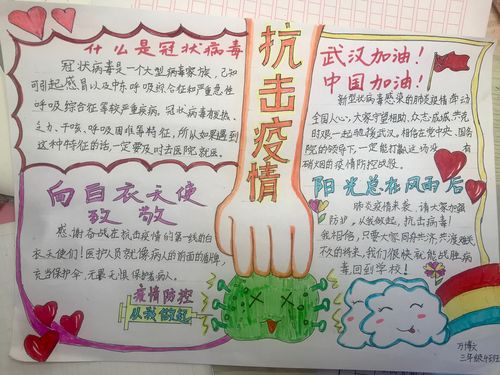 什么是冠状病毒
冠状病毒是一个大型病毒家族,已知
可引起感冒以及中东呼吸综合征和严重急性
呼吸综合征等较严重疾病,冠状病毒
乏力、干咳、呼吸困难等特征,所以如果遇到
这种特征的话,一定要及时去医院就医。
抗击疫情
武汉加油!
中国加油!
新型状病毒感染的肺炎疫情牵动
全国人心,大家守望相助、众志成城、共克
时艰一起驰援武汉。相信在党中央、国务
院的领导下,一定能打赢这场没有
硝烟的疫情防控战役。
向白衣天使
致敬
感谢奋战在抗击疫情的第一线的白
衣天使们!医护人员就像病人的前面的盾牌,
充当保护伞,无畏无惧保护着病人。
疫情防控
从我做起
阳光总在风雨后
肺炎疫情来袭,请大家加强
防护,从我做起,抗击病毒!
我相信,只要大家同舟共济,共渡难关
不久的将来,我们很快就能战胜病
毒回到学校!
万博
三年级4班